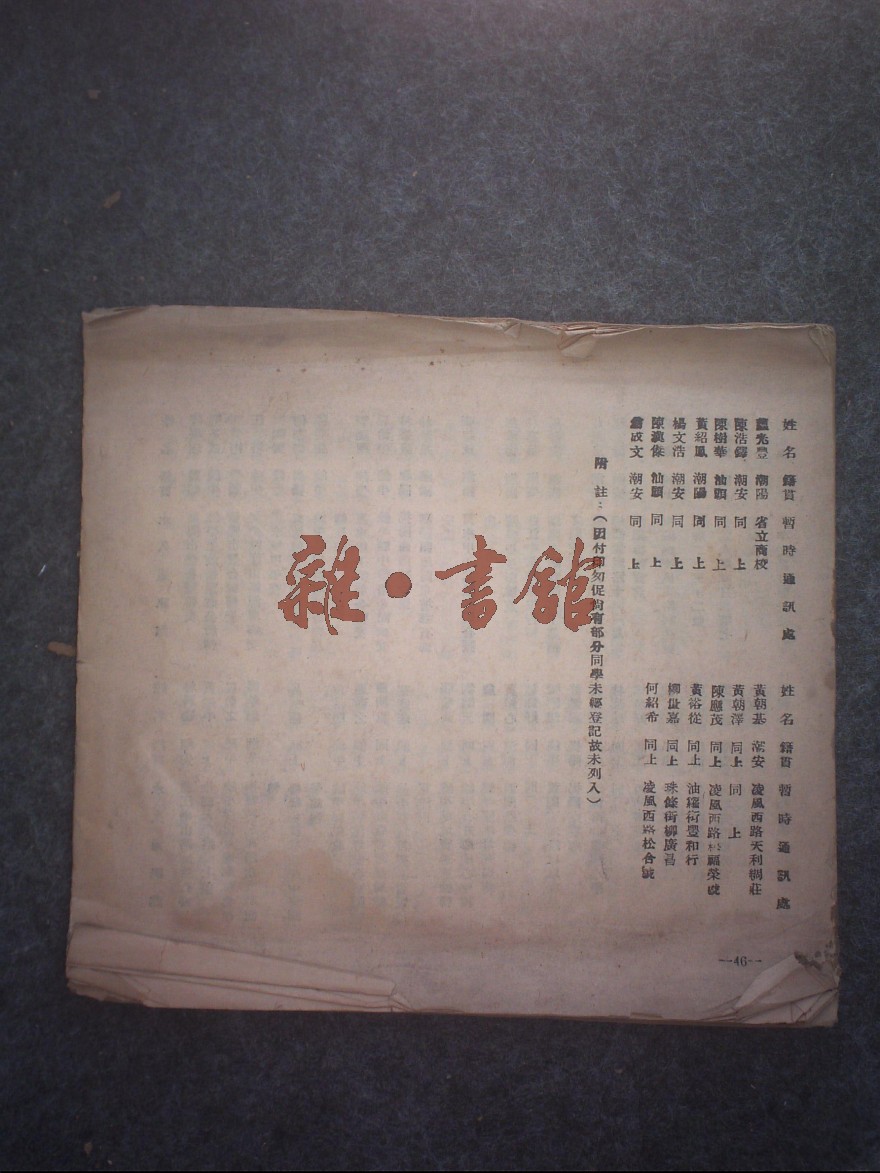 姓名 籍貫 暫時通訊處
光豐 潮陽 省立商校
陳浩鐸 潮安 同上
陳樹華 汕頭 同上
黃紹鳳 潮陽 同上
楊文浩 潮安 同上
陳漢傑 汕頭 同上
成文 潮安 同上
姓名 籍貫 暫時通訊處
黃朝基 潮安 凌風西路天利綢莊
黃朝澤 同上 同上
陳應茂 同上 凌風西路 福榮成
黃裕從 同上 油羅街豐和行
柳世嘉 同上 珠條街柳廣昌
何紹希 同上 凌風西路松合誠
附註：（因付印匆促尚有部分同學未經登記故未列入）
—46—
雜·書館